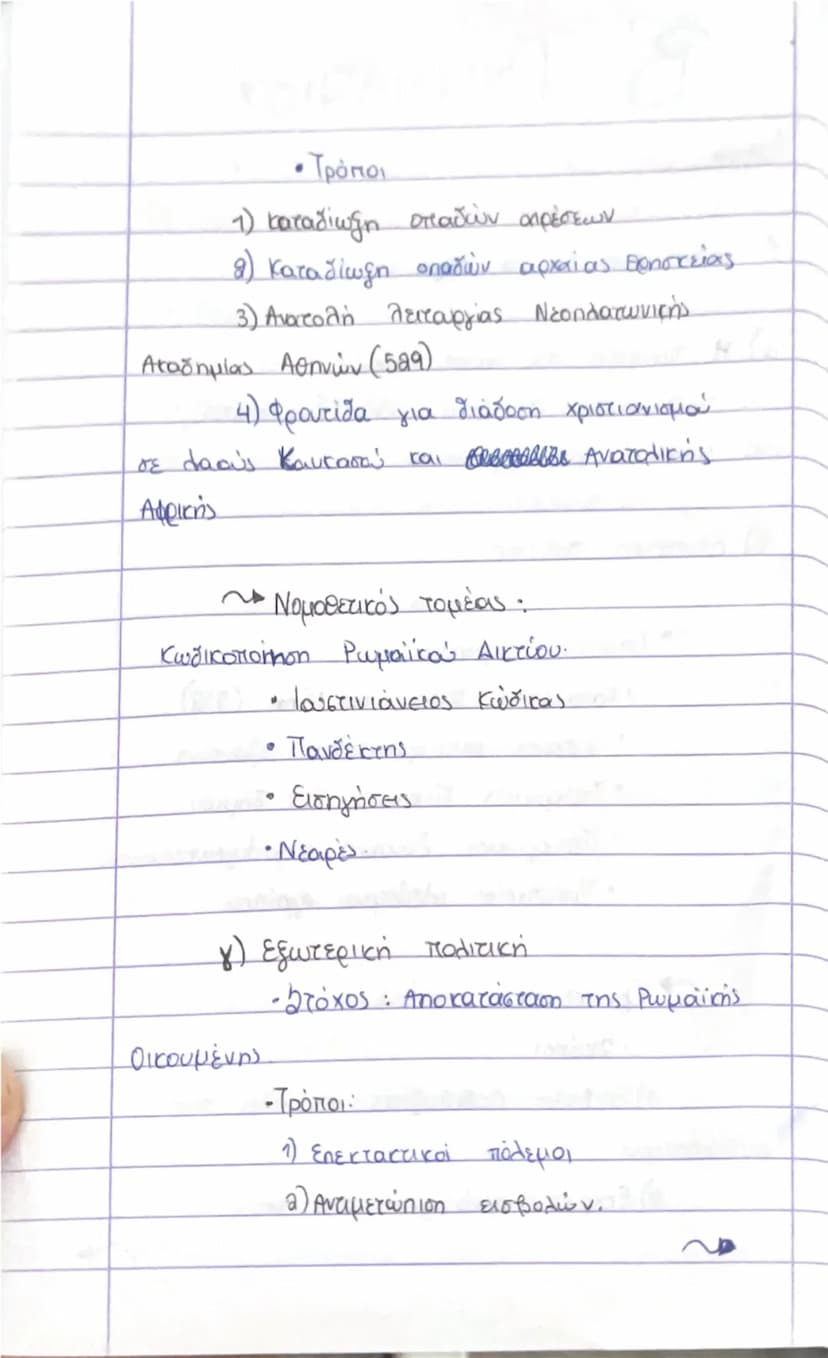 • Τρόποι
1) καταδίωξη οπαδών αιρέσεων
2) Καταδίωξη οπαδών αρχαίας θρησκείας
3) Ανατολή λειτουργίας Νεοπλατωνικής
Ακαδημίας Αθηνών (529)
4) Φροντίδα για διάδοση χριστιανισμού
σε λαούς Καυκασού και Ανατολικής
Αφρικής
~► Νομοθετικός τομέας :
Κωδικοποίηση Ρωμαϊκού Δικτίου.
• Ιουστινιάνειος Κώδικας
• Πανδέκτης
• Εισηγήσεις
• Νεαρές
γ) Εξωτερική πολιτική
- Στόχος : Αποκατάσταση της Ρωμαϊκής
Οικουμένης
- Τρόποι:
1) Επεκτατικοί πόλεμοι
2) Αντιμετώπιση εισβολών.